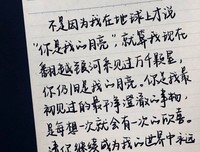 不是因为我在地球上才说
“你是我的月亮”，就算我现在
翻越银河来见过万千颗星，
你仍旧是我的月亮。你是我最
初见过的最干净澄澈的事物，
是每想一次就会有一次的欣喜。
请你继续成为我的世界中永远